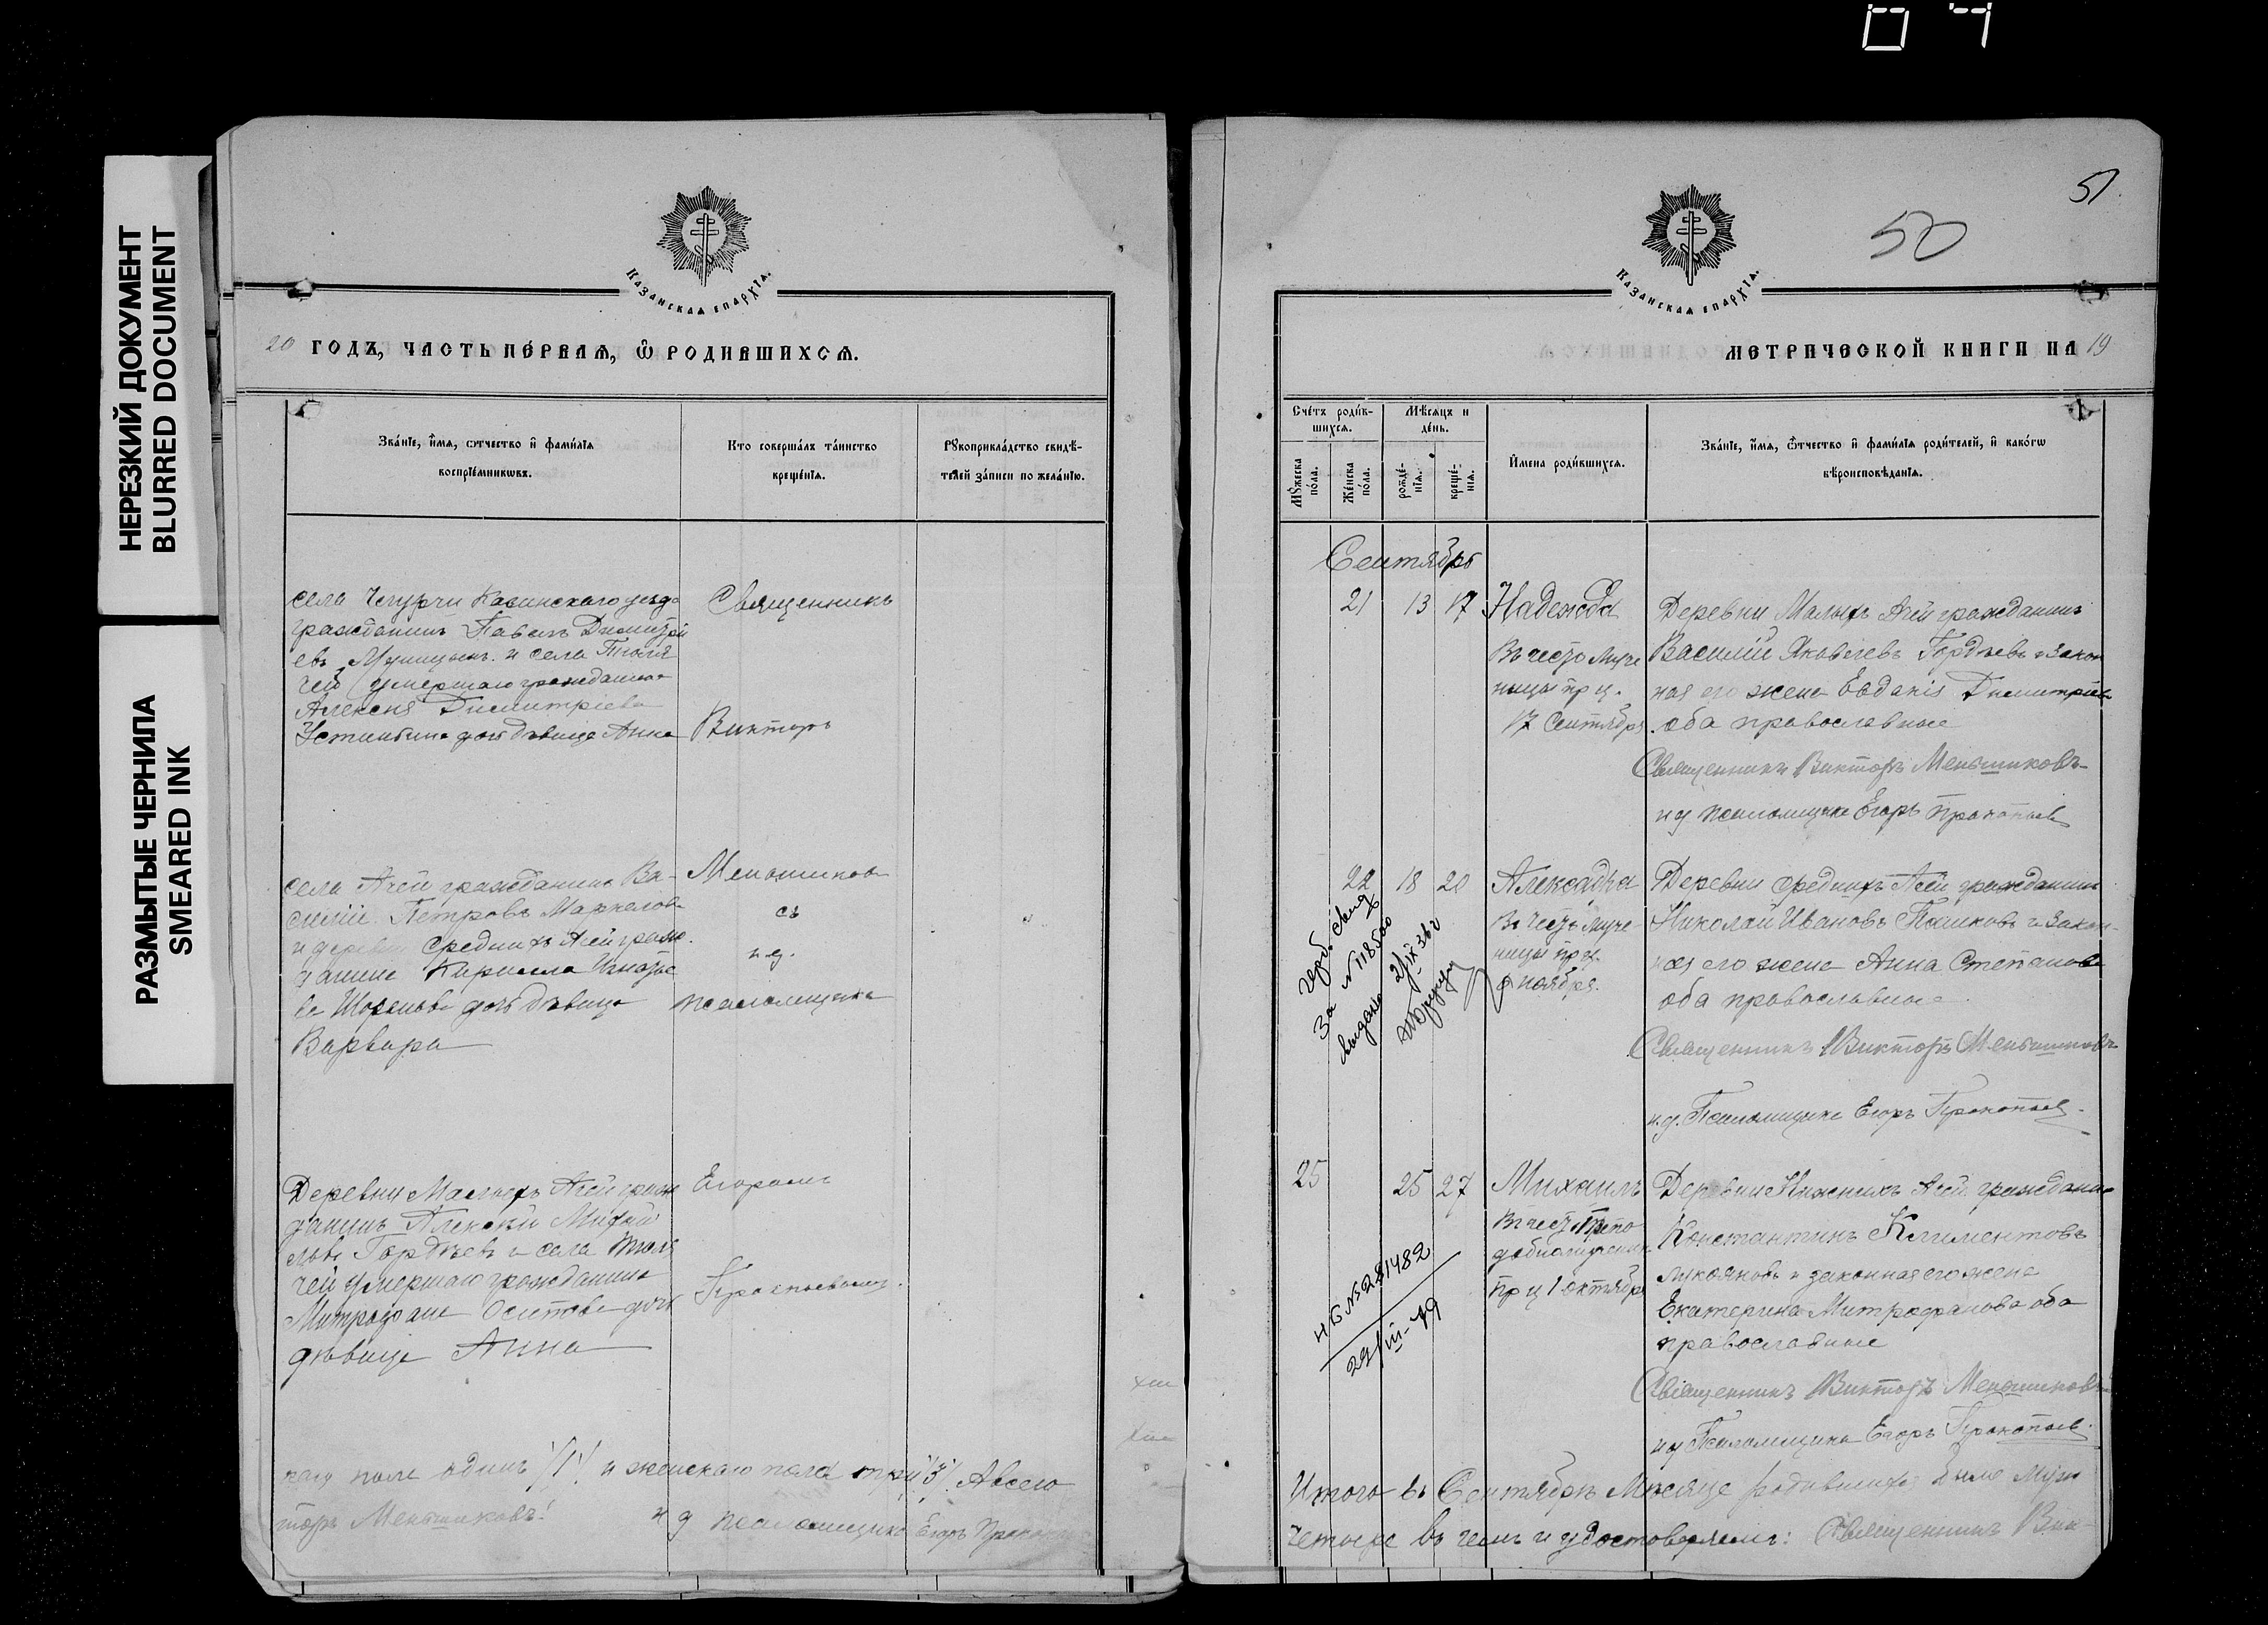 НЕРЕЗКИЙ ДОКУМЕНТ
BLURRED DOCUMENT
РАЗМЫТЫЕ ЧЕРНИЛА
SMEARED INK
Казанская Епархїѧ.
20 годъ, часть первая, ѿ родившихсѧ.
Званїе, имѧ, отчество и фамилїѧ
воспрїемниковъ.
Кто совершалъ таинство
крещенїѧ.
Рукоприкладство свидѣ-
телей записи по желанїю.
села Чегурчи Казинскаго уезда
гражданинъ Павелъ Димитрі
евъ и села Тюля
чей умершаго гражданина
Алексея Димитріева
Устинбина дочь девица Анна
Священникъ
Викторъ
села Ачей гражданинъ Ва-
силій Петровъ Маркелов
и деревни Среднихъ Ачей граж.
данина Кирилла Игнатье
ва дочь девица
Варвара
Меньшиков
съ
и.д.
псаломщика
Деревни Малыхъ Ачей граж
данинъ Алексей Михай
ловъ Гордѣевъ и села Тюля
чей умершаго гражданина
Митрофана Осипова дочь
дѣвица Анна
Егоромъ
Прокопьевымъ.
скаго пола одинъ /1/ и женскаго пола три /3/. А всего
торъ Меньшиковъ! и д псаломщика Егоръ Прокопьев
51
50
Казанская Епархїѧ.
метрической книги на 19
Счетъ родив-
шихсѧ.
Мѣсѧцъ и
день.
Мужеска
пола.
Женска
пола.
рожде-
нїѧ.
креще-
нїѧ.
Имена родившихсѧ.
Званїе, имѧ, ѿчество и фамилїѧ родителей, и какогѡ
вѣроисповѣданїѧ.
Сентябрь
21 13 17 Надежда
Въ честь муче
ницы пр ц.
17 Сентября
Деревни Малыхъ Ачей гражданинъ
Василій Яковлевъ Гордѣевъ и закон
ная его жена Евдокія Димитріева
оба православные
Священникъ Викторъ Меньшиковъ
и д псаломщика Егоръ Прокопьев
22 18 20 Алексадра
Въ честь муче
ницы пр ц.
6 ноября.
Деревни Среднихъ Ачей гражданинъ
Николай Ивановъ Пашковъ и закон-
ная его жена Анна Степанова
оба православные.
Священникъ Викторъ Меньшиковъ
и.д. Псаломщика Егоръ Прокопьев.
за № 118500
выдано 21/IX 36 г
25 25 27 Михаилъ
Въ честь Препо
добномученик
пр ц 1 октября
Деревни Нижнихъ Ачей гражданинъ
Константинъ Климентовъ
Лукояновъ и законная его жена
Екатерина Митрофанова оба
православные
Священникъ Викторъ Меньшиковъ
и д Псаломщика Егоръ Прокопьев.
НБ № 281482
29/III-49
Итого въ Сентябрѣ Мѣсяце родившихся было муж
четыре въ чемъ и удостоверяемъ: Священникъ Вик-